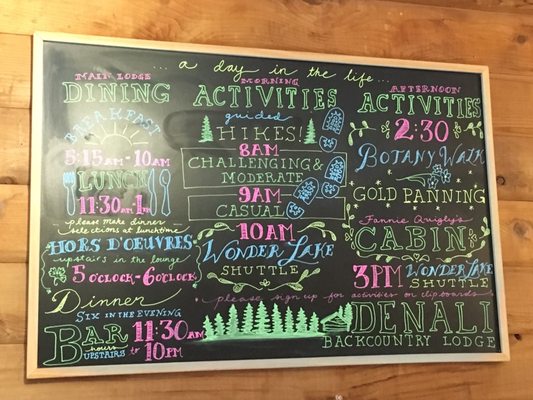 ... a day in the life ...
MAIN LODGE
DINING
BREAKFAST
5:15AM - 10AM
LUNCH
11:30AM-1PM
please make dinner
selections at lunchtime
HORS D'OEUVRES
upstairs in the lounge
5 O'CLOCK-6 O'CLOCK
Dinner
SIX IN THE EVENING
BAR
hours
UPSTAIRS
11:30AM
to 10PM
MORNING
ACTIVITIES
guided
HIKES!
8AM
CHALLENGING &
MODERATE
9AM
CASUAL
10AM
WONDER LAKE
SHUTTLE
AFTERNOON
ACTIVITIES
2:30
BOTANY WALK
GOLD PANNING
Fannie Quigley's
CABIN
3PM WONDER LAKE
SHUTTLE
please sign up for activities on clipboards
DENALI
BACKCOUNTRY LODGE